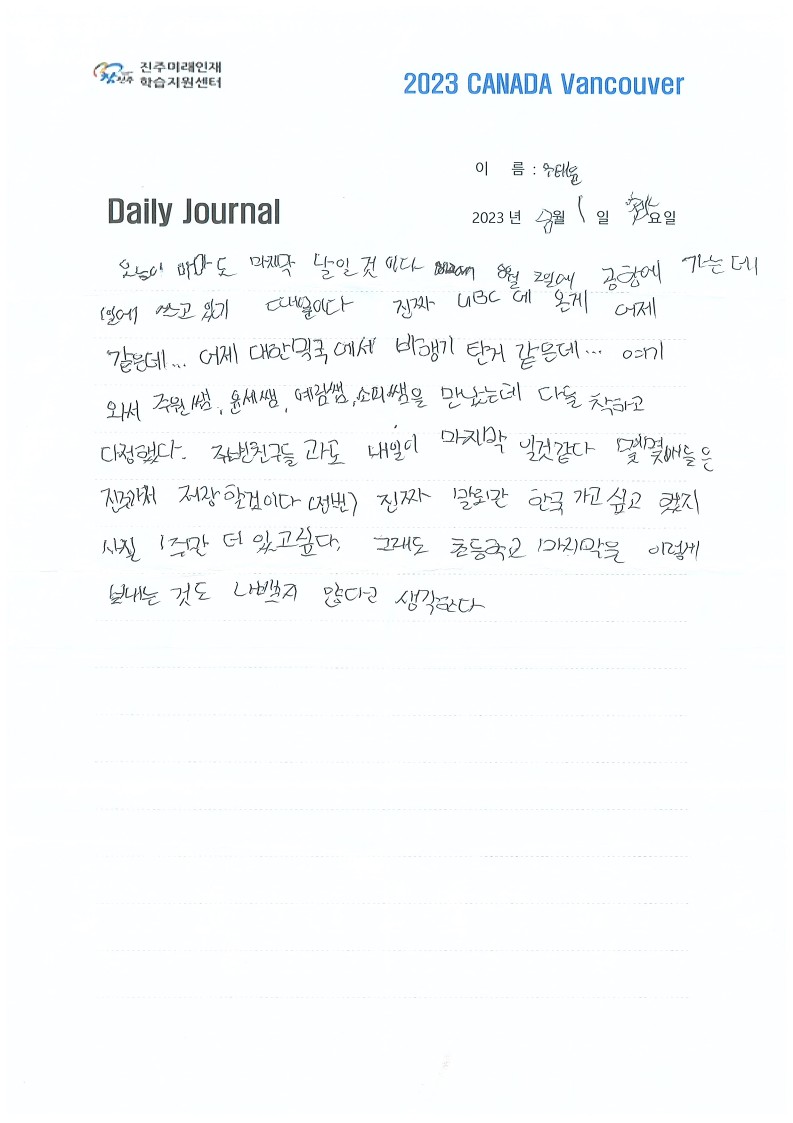 진주미래인재
학습지원센터
2023 CANADA Vancouver
이 름 :
Daily Journal
2023 년 월 1 일 화요일
오늘이 마도 마지막 날일 것 이다 8월 2일에 공항에 가는 데
1일에 쓰고 있기 때문이다 진짜 UBC 에 온게 어제
같은데... 어제 대한민국 에서 비행기 탄거 같은데... 여기
와서 주원쌤, 윤세쌤, 예림쌤, 소피쌤을 만났는데 다들 착하고
다정했다. 주변친구들 과도 내일이 마지막 일것같다 몇몇애들은
저장 할것이다 (전번) 진짜 말로만 한국 가고 싶고 했지
사실 1주만 더 있고싶다. 그래도 초등학교 마지막을 이렇게
보내는 것도 나쁘지 않다고 생각한다